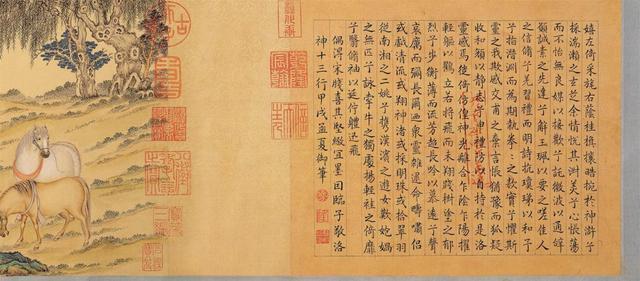 嬉左倚采旄右蔭桂旗攘皓腕於神滸兮
採湍瀨之玄芝余情悅其淑美兮心振蕩
而不怡無良媒以接歡兮託微波以通辭
願誠素之先達兮解玉珮以要之嗟佳人
之信脩兮羌習禮而明詩抗瓊珶以和予
兮指潛淵而為期執拳〻之款實兮懼斯
靈之我欺感交甫之棄言悵猶豫而狐疑
收和顏以靜志兮申禮防以自持於是洛
靈感焉徙倚傍徨神光離合乍陰乍陽擢
輕軀以鶴立若將飛而未翔踐椒塗之郁
烈兮步衡薄而流芳超長吟以慕遠兮聲
哀厲而彌長爾迺衆靈雜遝命疇嘯侶
或戲清流或翔神渚或採明珠或拾翠羽
從南湘之二姚兮攜漢濱之遊女歎炮媧
之無匹兮詠牽牛之獨處揚輕袿之倚靡
兮翳脩袖以延佇體迅飛
偶得宋牋喜其堅緻宜墨因臨子敬洛
神十三行甲戌孟夏御筆